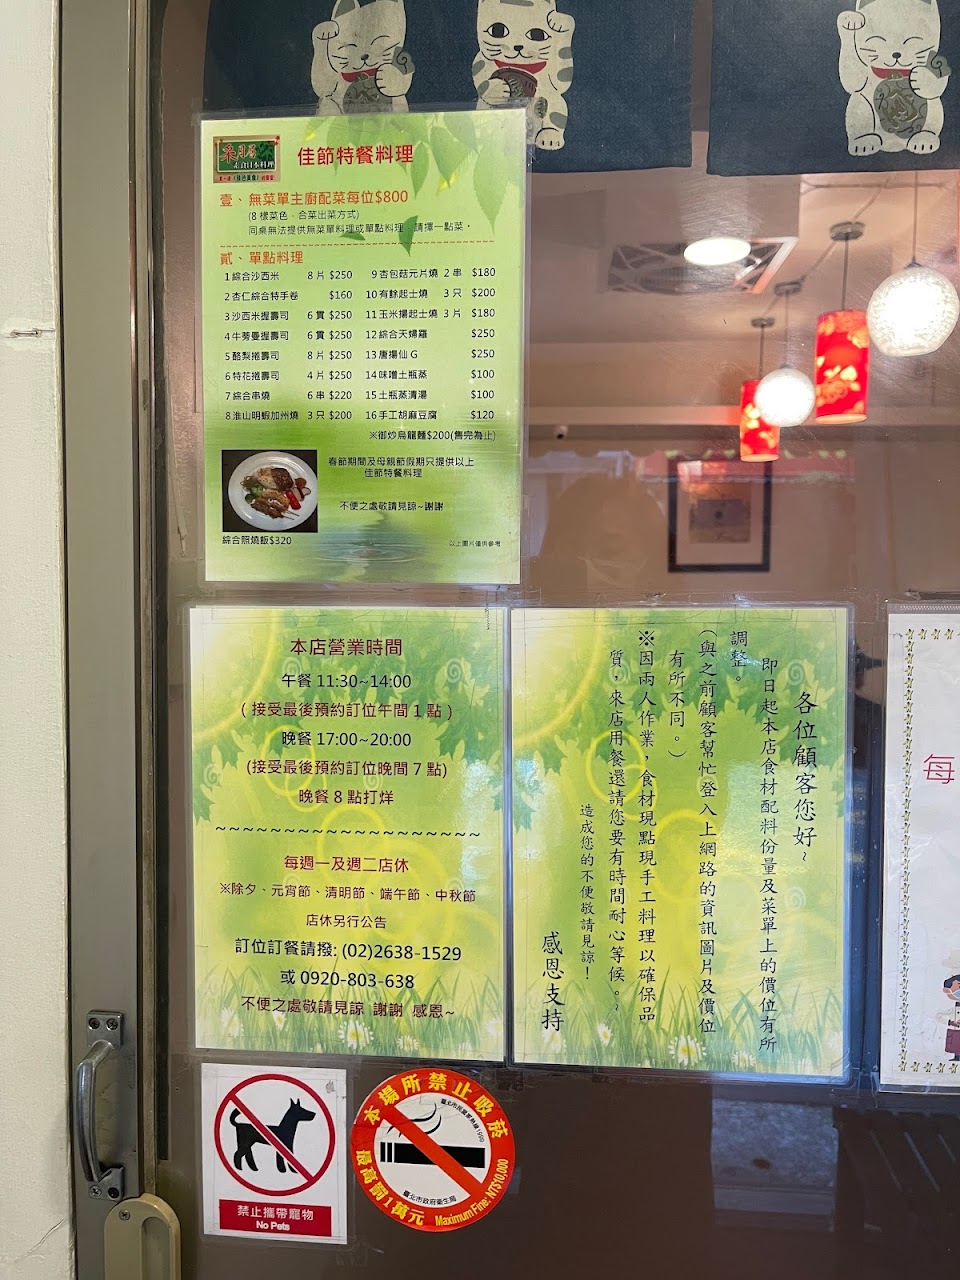 素食日本料理
佳節特餐料理
壹、無菜單主廚配菜每位$800
(8 樣菜色、合菜出菜方式)
同桌無法提供無菜單料理或單點料理，請擇一點菜。
貳、單點料理
1 綜合沙西米 8 片 $250
2 杏仁綜合特手卷 $160
3 沙西米握壽司 6 貫 $250
4 牛蒡曼握壽司 6 貫 $250
5 酪梨捲壽司 8 片 $250
6 特花捲壽司 4 片 $250
7 綜合串燒 6 串 $220
8 淮山明蝦加州燒 3 只 $200
9 杏包菇元片燒 2 串 $180
10 有餘起士燒 3 只 $200
11 玉米揚起士燒 3 片 $180
12 綜合天婦羅 $250
13 唐揚仙 G $250
14 味噌土瓶蒸 $100
15 土瓶蒸清湯 $100
16 手工胡麻豆腐 $120
※御炒烏龍麵$200(售完為止)
春節期間及母親節假期只提供以上
佳節特餐料理
不便之處敬請見諒~謝謝
綜合照燒飯$320
以上圖片僅供參考
本店營業時間
午餐 11:30~14:00
( 接受最後預約訂位午間 1 點 )
晚餐 17:00~20:00
(接受最後預約訂位晚間 7 點)
晚餐 8 點打烊
~~~~~~~~~~~~~~~~~~~~
每週一及週二店休
※除夕、元宵節、清明節、端午節、中秋節
店休另行公告
訂位訂餐請撥: (02)2638-1529
或 0920-803-638
不便之處敬請見諒 謝謝 感恩~
各位顧客您好~
即日起本店食材配料份量及菜單上的價位有所
調整。
(與之前顧客幫忙登入上網路的資訊圖片及價位
有所不同。)
※因兩人作業，食材現點現手工料理以確保品
質，來店用餐還請您要有時間耐心等候。~
造成您的不便敬請見諒！
感恩支持
每
禁止攜帶寵物
No Pets
本場所禁止吸菸
臺北市民當家熱線1999
臺北市政府衛生局
最高罰1萬元 Maximum Fine: NT$10,000